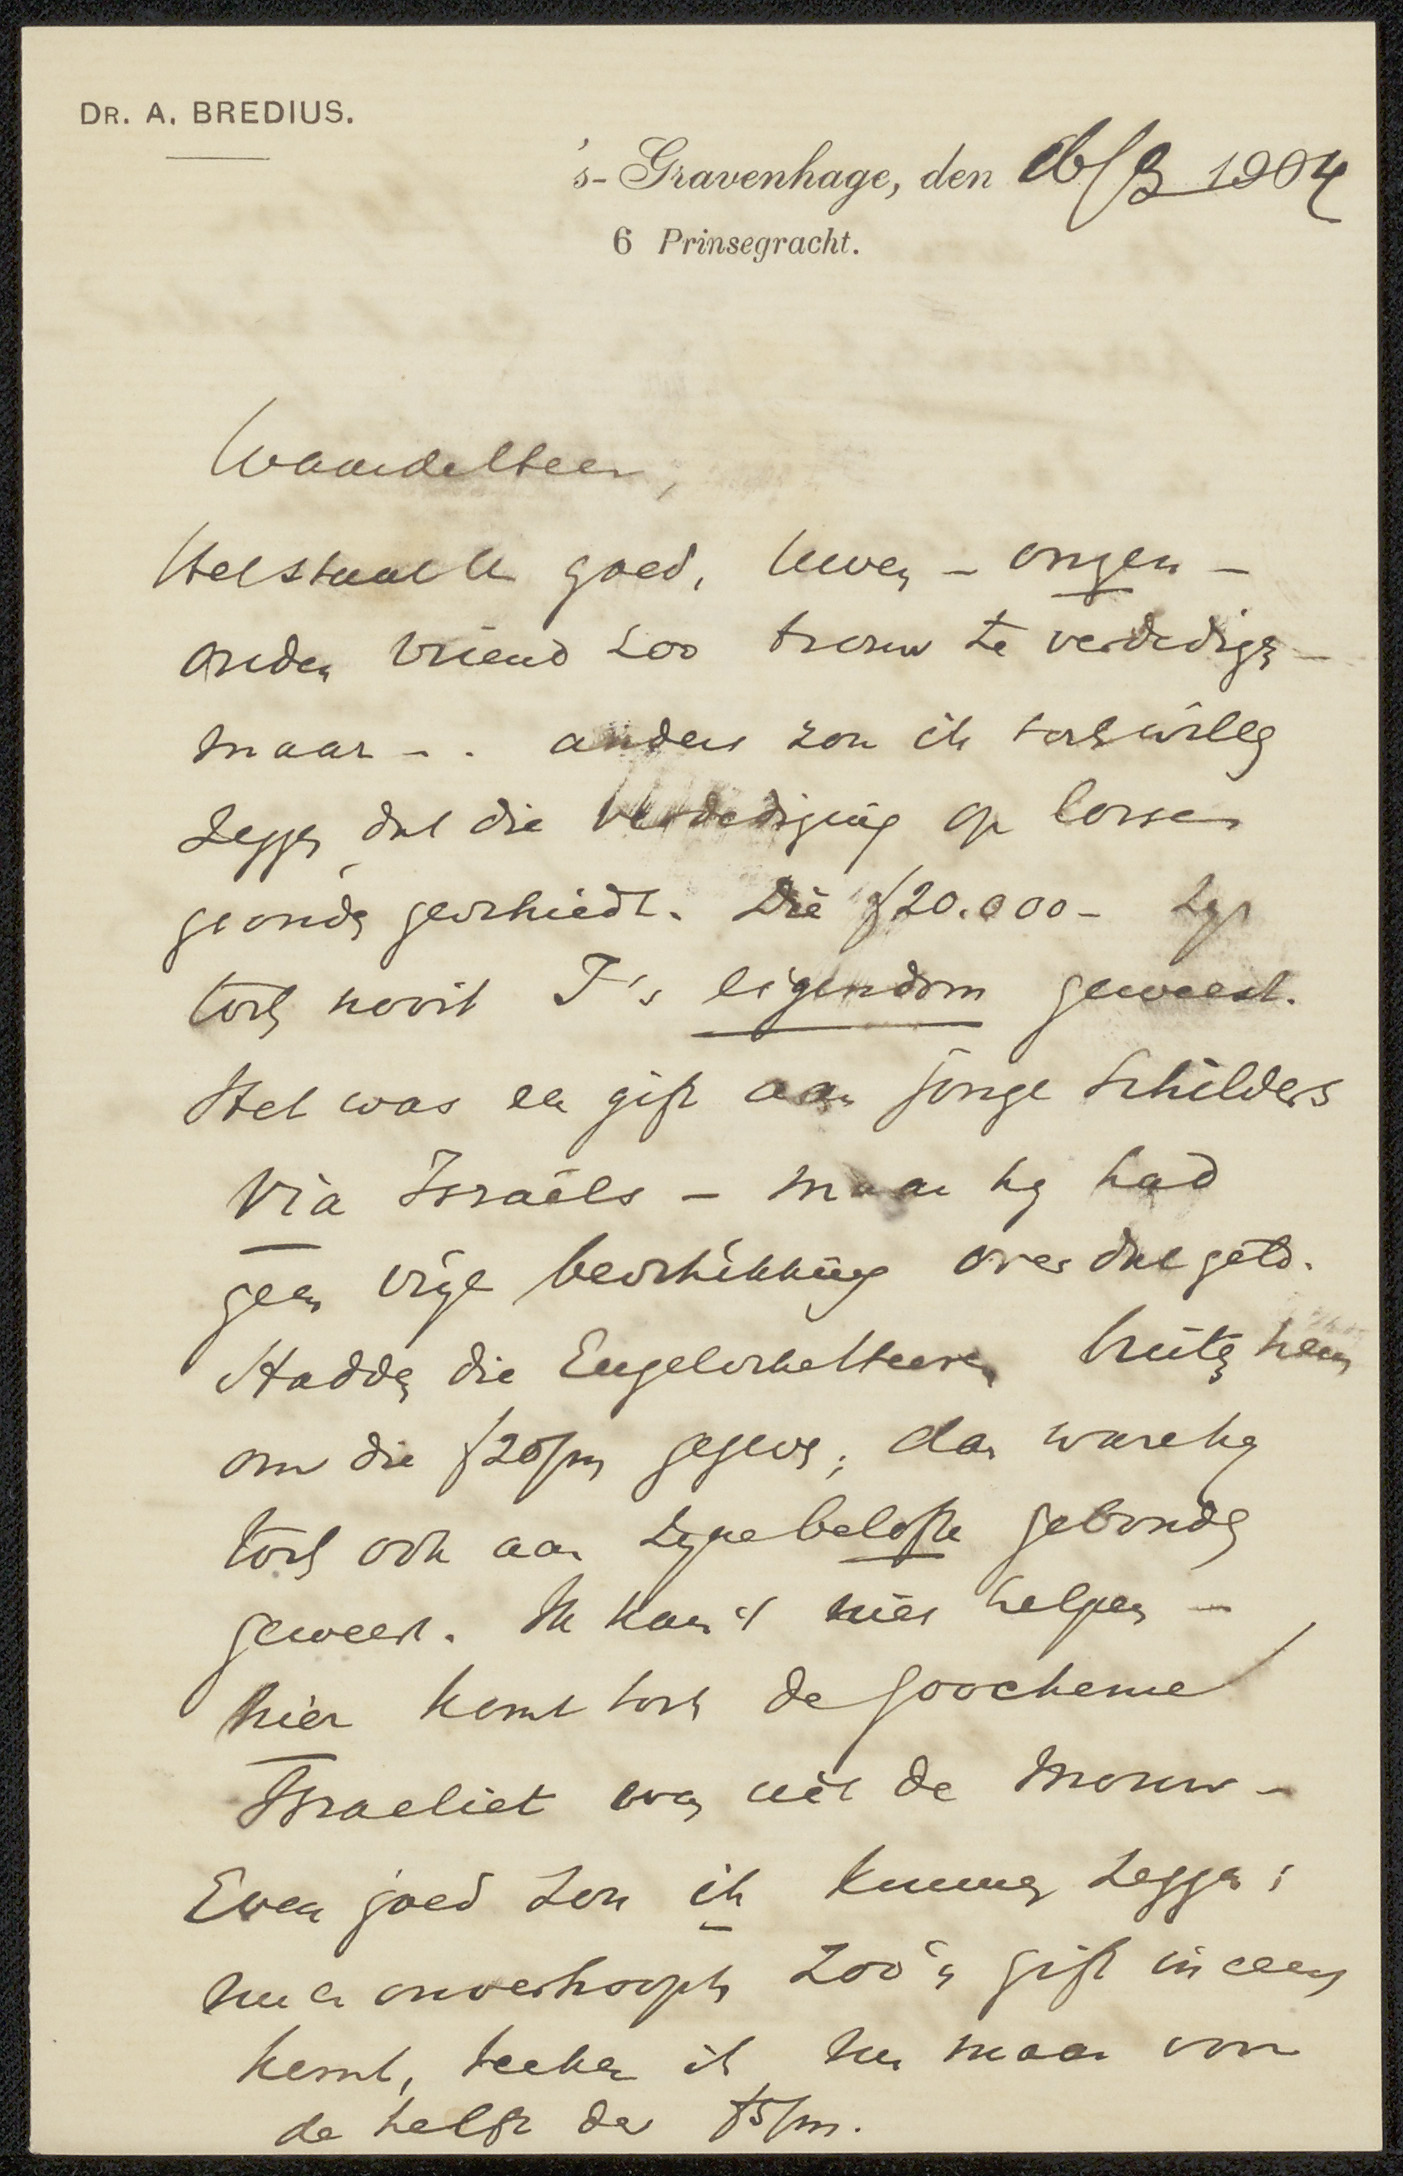 DR. A. BREDIUS.
's-Gravenhage, den 26/3 1904
6 Prinsegracht.
Waarde Heer,
Het staat U goed, Uwen – onzen –
ouden vriend zoo trouw te verdedigen –
maar - . anders zou ik toch willen
zeggen, dat die verdediging op losse
gronden geschiedt. Die ƒ20.000- zijn
toch nooit I's eigendom geweest.
Het was een gift aan jonge schilders
via Israëls – maar hij had
geen vrije beschikking over dat geld.
Hadden die Engelsche Heeren buiten hem
om die ƒ20/m gegeven; dan ware hij
toch ook aan zijne belofte gebonden
geweest. Ik kan 't niet helpen –
hier komt toch de goocheme
Israeliet even uit de mouw –
Even goed zou ik kunnen zeggen:
nu er onverhoopt zoo'n gift ineens
komt, teeken ik nu maar voor
de helft der ƒ5/m.